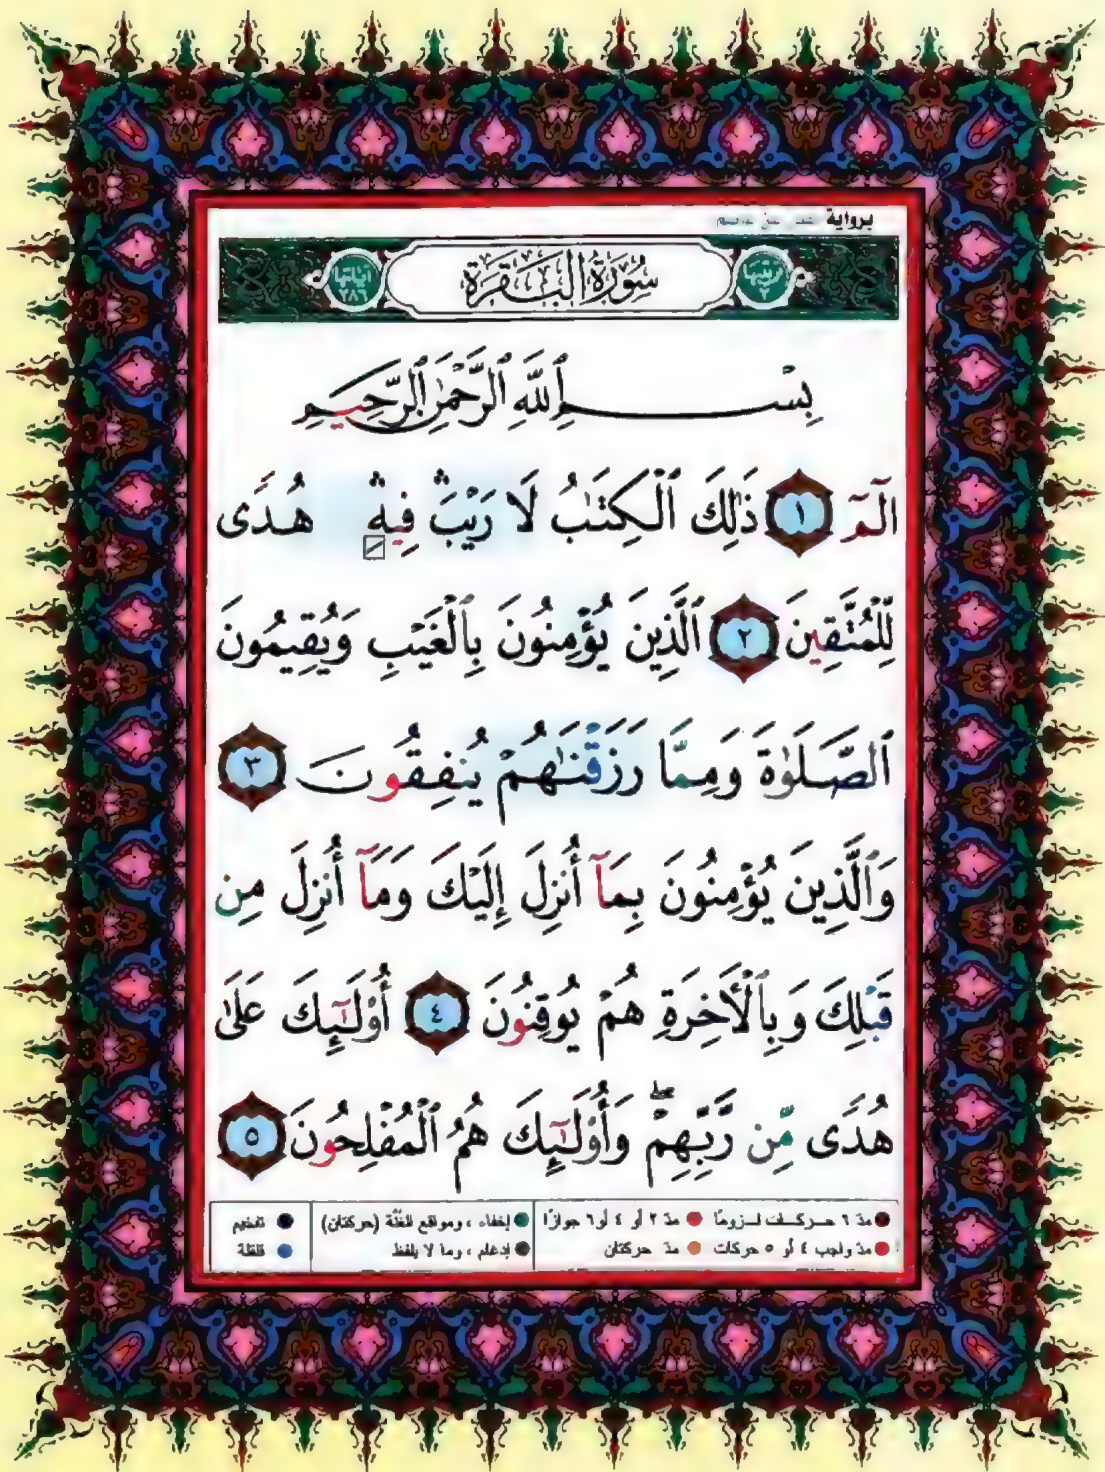 برواية
ترتيبها ٢ سُورَةُ الْبَقَرَةِ آياتها ٢٨٦
بِسْمِ ٱللَّهِ ٱلرَّحْمَٰنِ ٱلرَّحِيمِ
الٓمٓ ١ ذَٰلِكَ ٱلْكِتَٰبُ لَا رَيْبَ ۛ فِيهِ ۛ هُدًى
لِّلْمُتَّقِينَ ٢ ٱلَّذِينَ يُؤْمِنُونَ بِٱلْغَيْبِ وَيُقِيمُونَ
ٱلصَّلَوٰةَ وَمِمَّا رَزَقْنَٰهُمْ يُنفِقُونَ ٣
وَٱلَّذِينَ يُؤْمِنُونَ بِمَآ أُنزِلَ إِلَيْكَ وَمَآ أُنزِلَ مِن
قَبْلِكَ وَبِٱلْأَخِرَةِ هُمْ يُوقِنُونَ ٤ أُو۟لَٰٓئِكَ عَلَىٰ
هُدًى مِّن رَّبِّهِمْ ۖ وَأُو۟لَٰٓئِكَ هُمُ ٱلْمُفْلِحُونَ ٥
مدّ ٦ حركات لزوماً مدّ ٢ أو ٤ أو ٦ جوازاً إخفاء ، ومواقع الغنّة (حركتان) تفخيم
مدّ واجب ٤ أو ٥ حركات مدّ حركتان إدغام ، وما لا يلفظ قلقلة